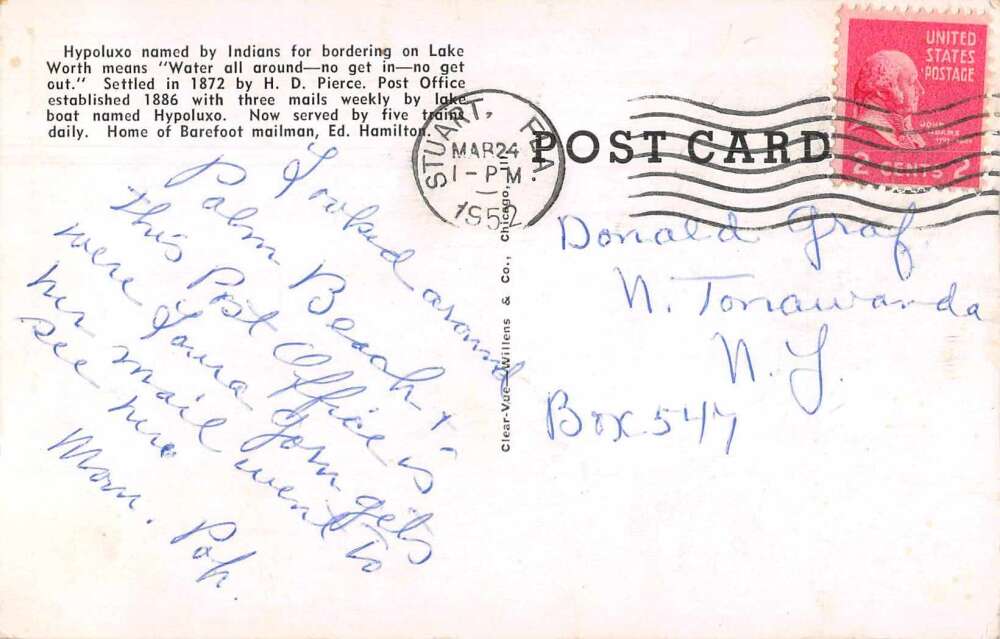 Hypoluxo named by Indians for bordering on Lake
Worth means "Water all around—no get in—no get
out." Settled in 1872 by H. D. Pierce. Post Office
established 1886 with three mails weekly by lake
boat named Hypoluxo. Now served by five trains
daily. Home of Barefoot mailman, Ed. Hamilton.
STUART, FLA.
MAR 24
1-PM
1952
POST CARD
UNITED
STATES
POSTAGE
JOHN
ADAMS
2 CENTS 2
Clear-Vue—Willens & Co., Chicago, Ill.
Looked around
Palm Beach +
this Post Office is
were gets
her mail went to
see her
Mom. Pop.
Donald Graf
N. Tonawanda
N. Y.
Box 547